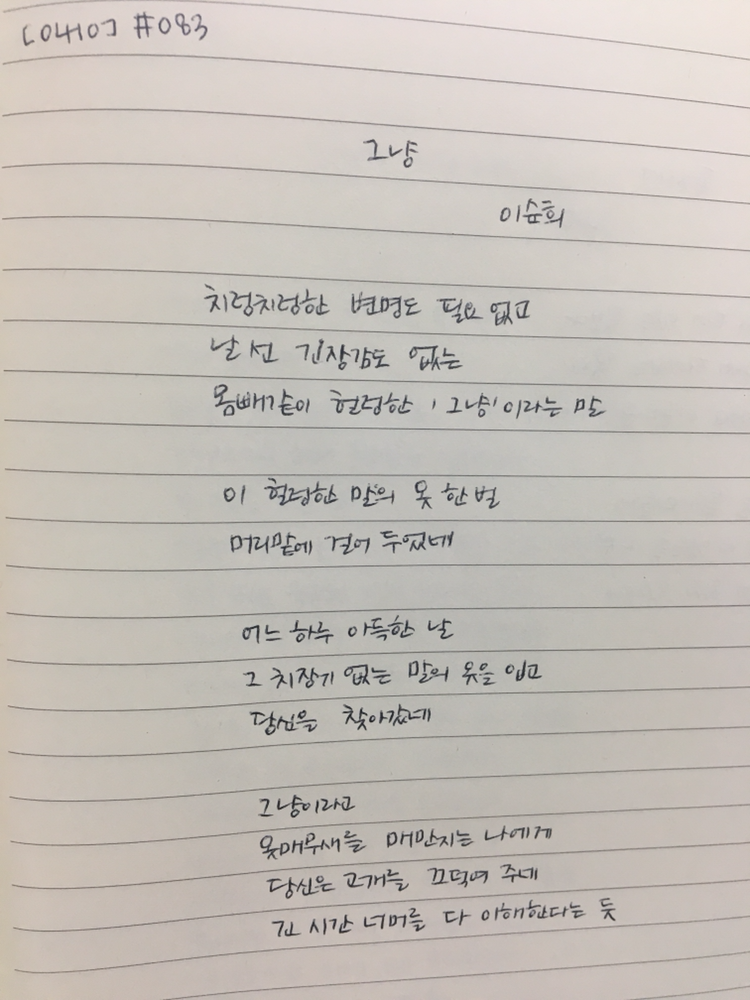 [0410] #083
그냥
이순희
치렁치렁한 변명도 필요 없고
날 선 긴장감도 없는
몸빼같이 헐렁한 '그냥'이라는 말
이 헐렁한 말의 옷 한 벌
머리맡에 걸어 두었네
어느 하루 아득한 날
그 치장기 없는 말의 옷을 입고
당신을 찾아갔네
그냥이라고
옷매무새를 매만지는 나에게
당신은 고개를 끄덕여 주네
긴 시간 너머를 다 이해한다는 듯